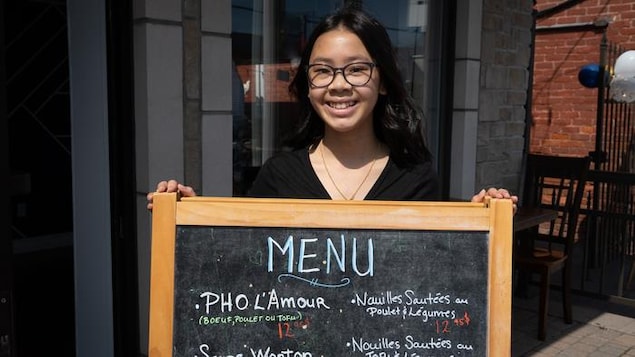 MENU
• PHO L'AMOUR
(BOEUF, POULET OU TOFU)
12
• Nouilles Sautées au
Poulet & Légumes
12
• Soupe Wonton
• Nouilles Sautées au
Tofu & Légumes